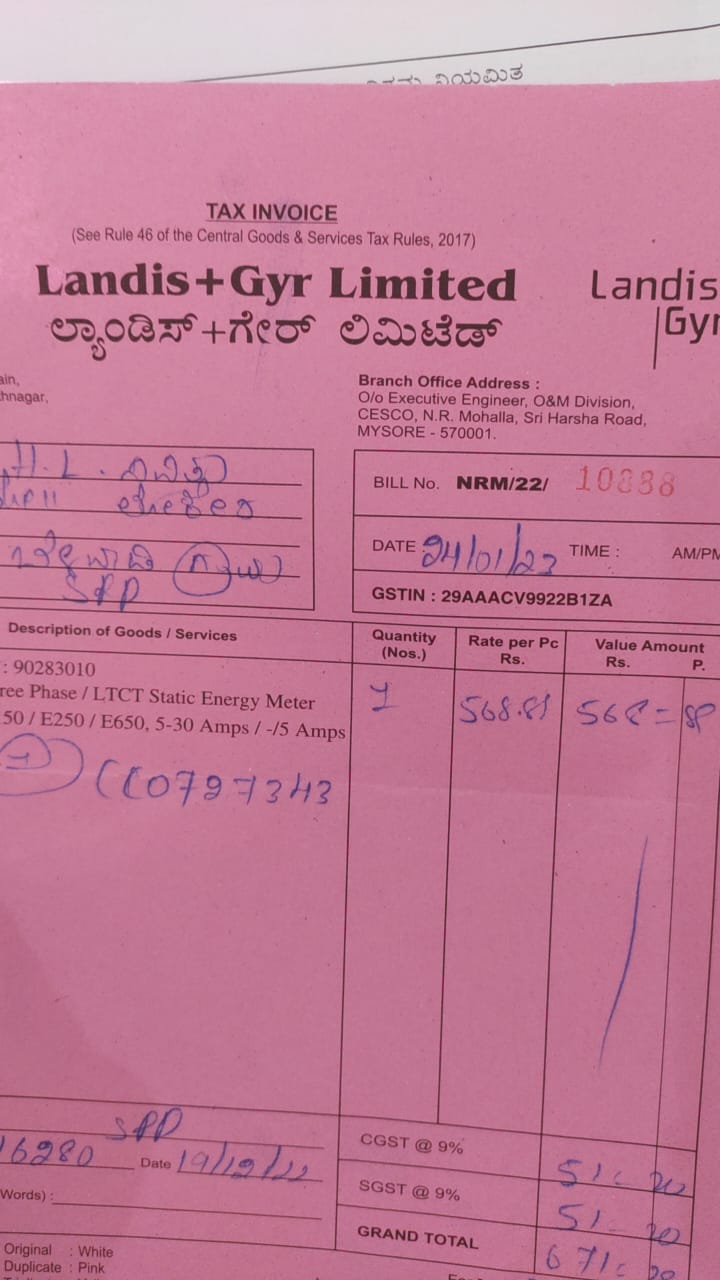 ನಿಯಮಿತ
TAX INVOICE
(See Rule 46 of the Central Goods & Services Tax Rules, 2017)
Landis+Gyr Limited
ಲ್ಯಾಂಡಿಸ್+ಗೇರ್ ಲಿಮಿಟೆಡ್
Landis
Gyr
ain,
hnagar,
Branch Office Address :
O/o Executive Engineer, O&M Division,
CESCO, N.R. Mohalla, Sri Harsha Road,
MYSORE - 570001.
H.L.
SPD
BILL No. NRM/22/ 10888
DATE 24/01/23 TIME : AM/PM
GSTIN : 29AAACV9922B1ZA
Description of Goods / Services
Quantity (Nos.)
Rate per Pc Rs.
Value Amount Rs. P.
: 90283010
ree Phase / LTCT Static Energy Meter
50 / E250 / E650, 5-30 Amps / -/5 Amps
1 568.81
0797343
SPD
16280 Date 19/12/22
Words) :
CGST @ 9% 51 20
SGST @ 9% 51 20
GRAND TOTAL 671
Original : White
Duplicate : Pink